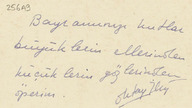 256A9
Bayramınızı kutlar
büyüklerin ellerinden
küçüklerin gözlerinden
öperim.